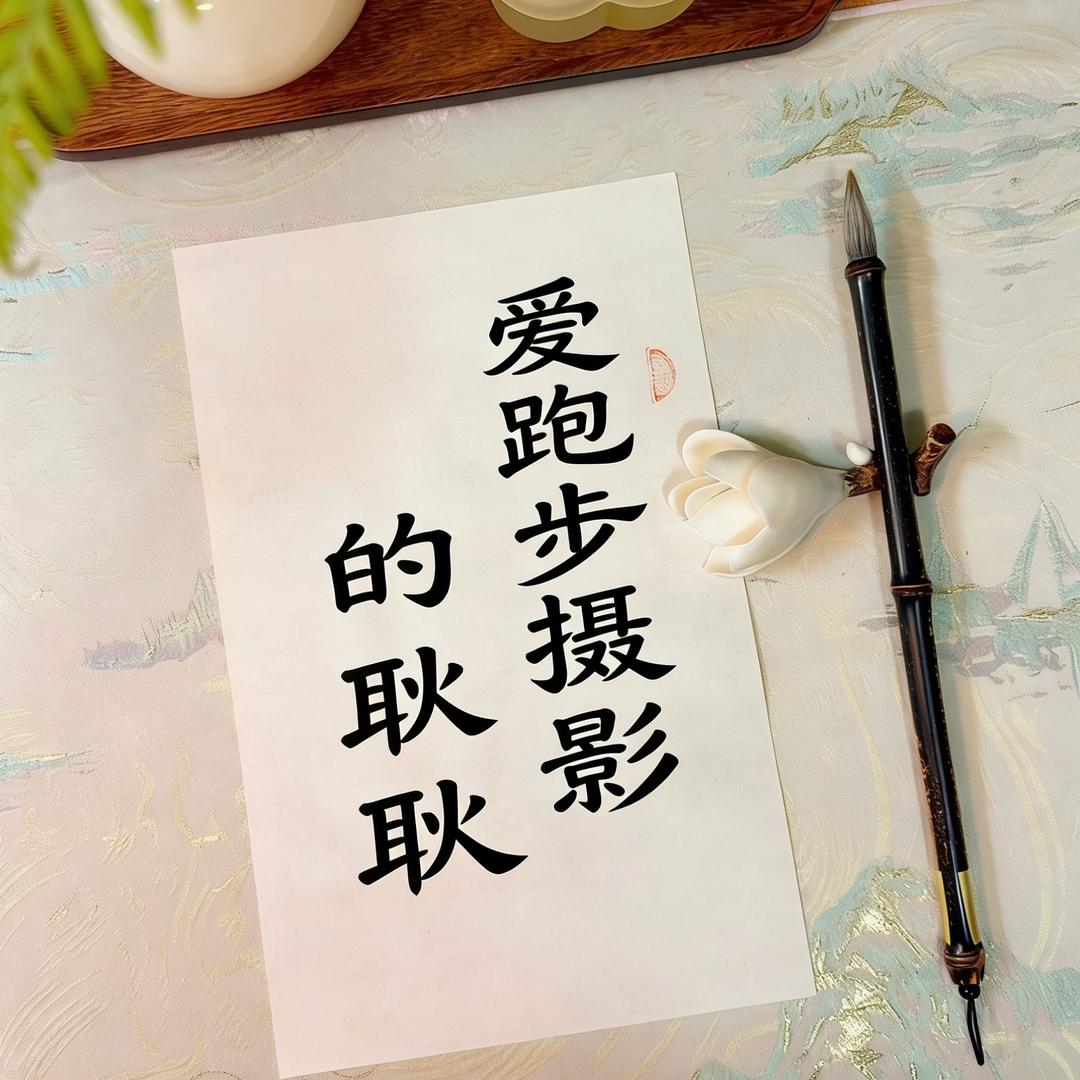 爱跑步摄影
的耿耿